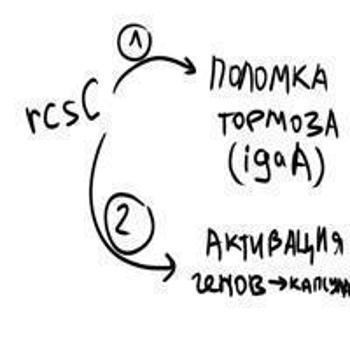 1
rcsC
ПОЛОМКА
ТОРМОЗА
(igaA)
2
АКТИВАЦИЯ
генов→капсула